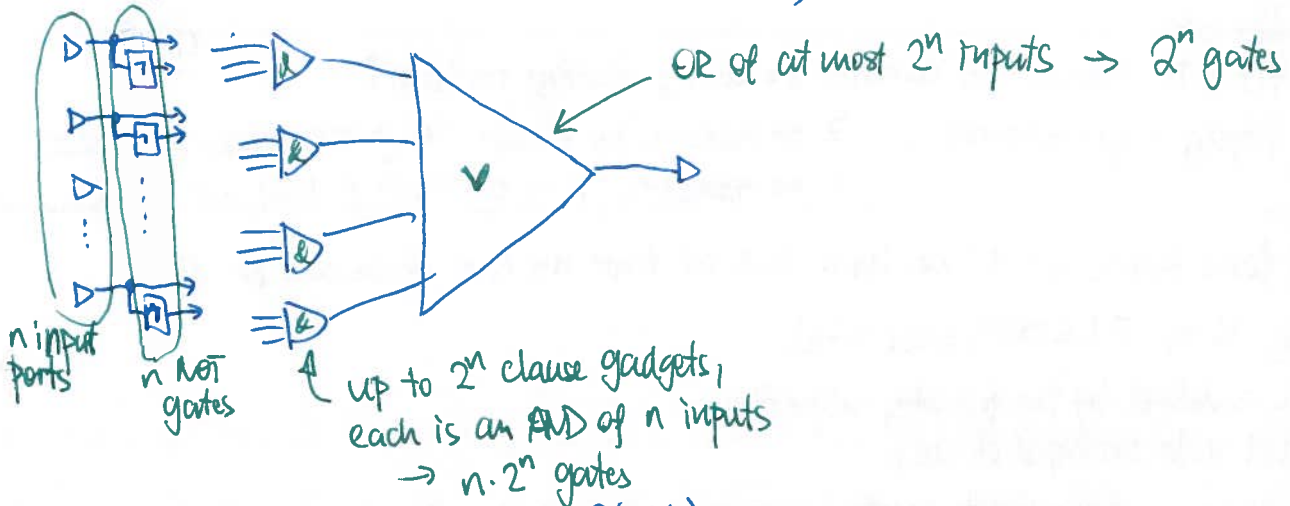 OR of at most 2ⁿ inputs → 2ⁿ gates
&
&
&
&
V
¬
¬
n input
ports
n NOT
gates
up to 2ⁿ clause gadgets,
each is an AND of n inputs
→ n·2ⁿ gates